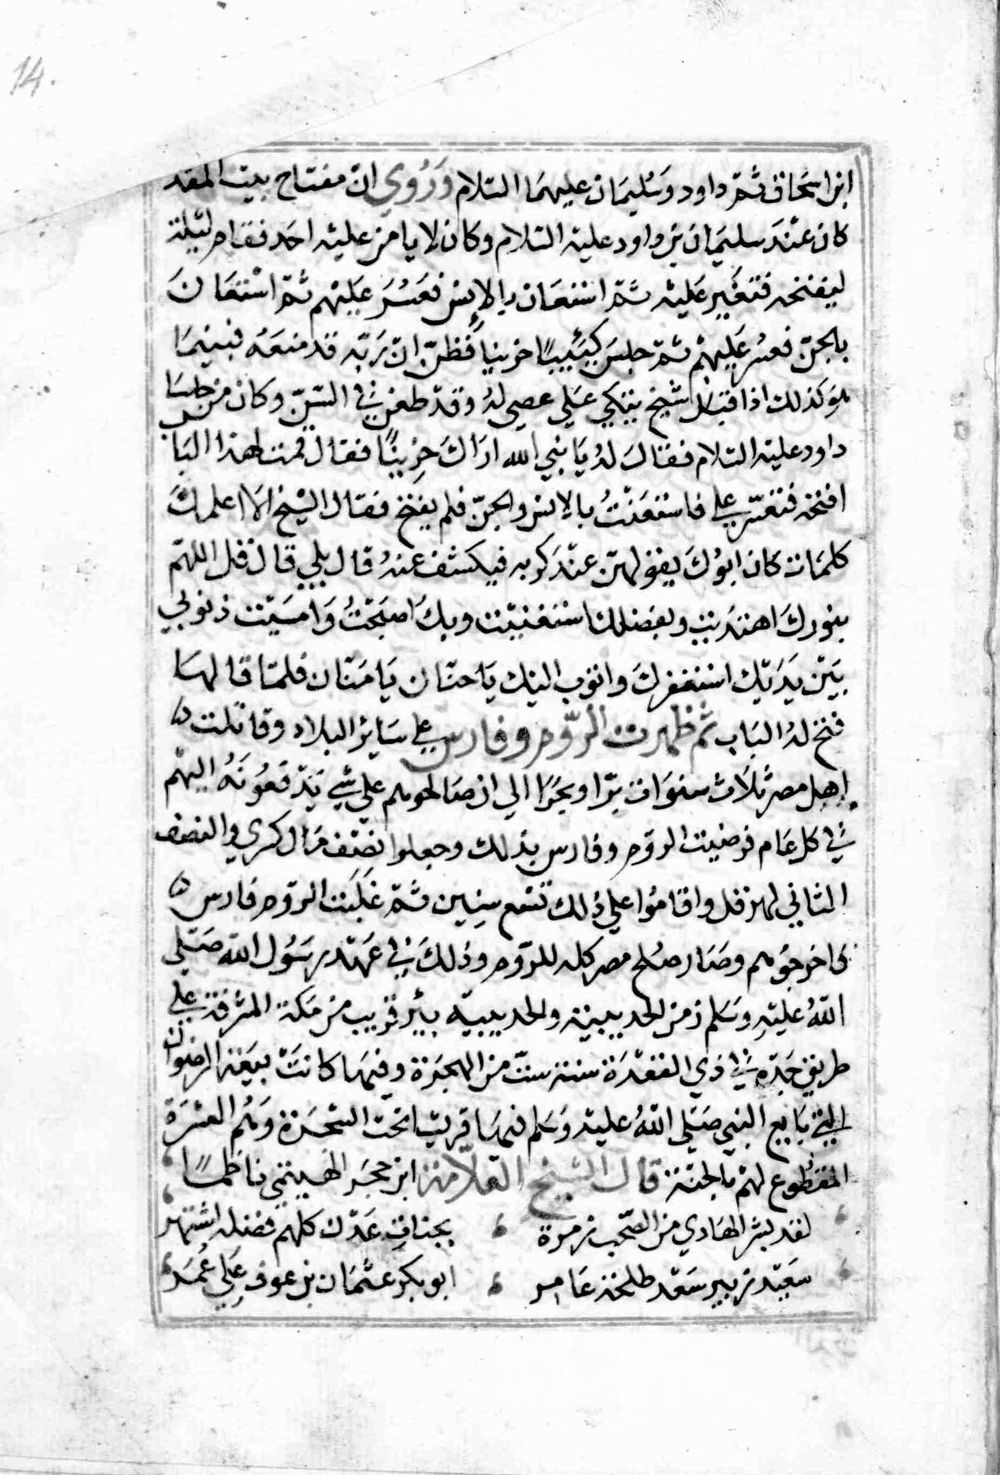 14.
ابن اسحاق ثمّ داود وسُليمان عليهما السّلام وَرُوي انّ مفتاح بيت المقد
كان عنْدَ سليمان بن داود عليه السّلام وكان لا يامن عليْه احَد فقام ليْلة
ليفتحه فتعَسّر عَليْه ثمّ استعَان بالإنس فعَسُرَ عَليْهم ثمّ اسْتعَانَ
بالجنّ فعسُر عَليهمْ ثمّ جلسَ كئيبًا حزينا فظنّ انّ رَبّه قد منعَهُ فبينمَا
هو كذلك اذ اقبَل شيخ يتكي عَلي عصي لهُ وقدْ طعن في السّنّ وكان من جلسَا
داود عليْه السّلام فقالَ لهُ يَا نبي الله ارَاكَ حزينًا فقال قمت لهذا البَا
افتحه فتعسّر علي فاستعَنْتُ بالإنس والجنّ فلم يفتح فقال الشيْخ الا اعلمكَ
كلمَات كان ابُوكَ يقولهنّ عنْد كربه فيكشف عنهُ قال بلي قال قل اللهمّ
بنورك اهتدَيت وبفضلك استغنيْت وبكَ اصبَحْتُ وَامسَيْت ذنوبي
بَيْن يدَيْك استغفرك واتوب اليْك يَا حنّان يَا مَنّان فلمّا قالهَا
فتح لهُ البَاب ثم ظهرت الرّوم وفارس علي سَاير البلاد وقاتلت ه
اهل مصر ثلاث سنوَات برّا وبحرًا الي ان صَالحوهم علي شي يَدْفعُونَهُ اليهْم
في كل عَام فرضيت الروم وفارس بذلك وجعلوا نصْف مَال كسري والنصف
الثاني لهرقل واقامُوا علي ذلك تسْع سنِين ثمّ غلَبَت الرّوم فارس ه
فاخرجُوهم وصَار صُلح مصر كله للرّوم وذلكَ في عَهْد رسُول الله صَلّي
اللهُ عليْهِ وَسَلم زمن الحديبية والحديبية بئر قريب من مَكة المشرفة علي
طريق جَدّه في ذي القعْدَة سَنة ستّ من الهجرَة وفيهَا كانتْ بيعَة الرضوان
التي بَايع النبي صَلي اللهُ عليْه وَسَلم فيهَا قريشا تحْت الشجَرَة وَهُم العشرَة
المقطُوع لهمْ بالجنّة قال الشيخ العَلاّمة ابن حجر الهيتمي ناظمًا
لقد بشر الهَادي من الصّحب زمرة ، بجنات عَدْن كلهم فضله اشتهر
سَعيْد زبير سَعْد طلحة عَامر ، ابو بكر عثمَان بن عوف عَلي عُمَر